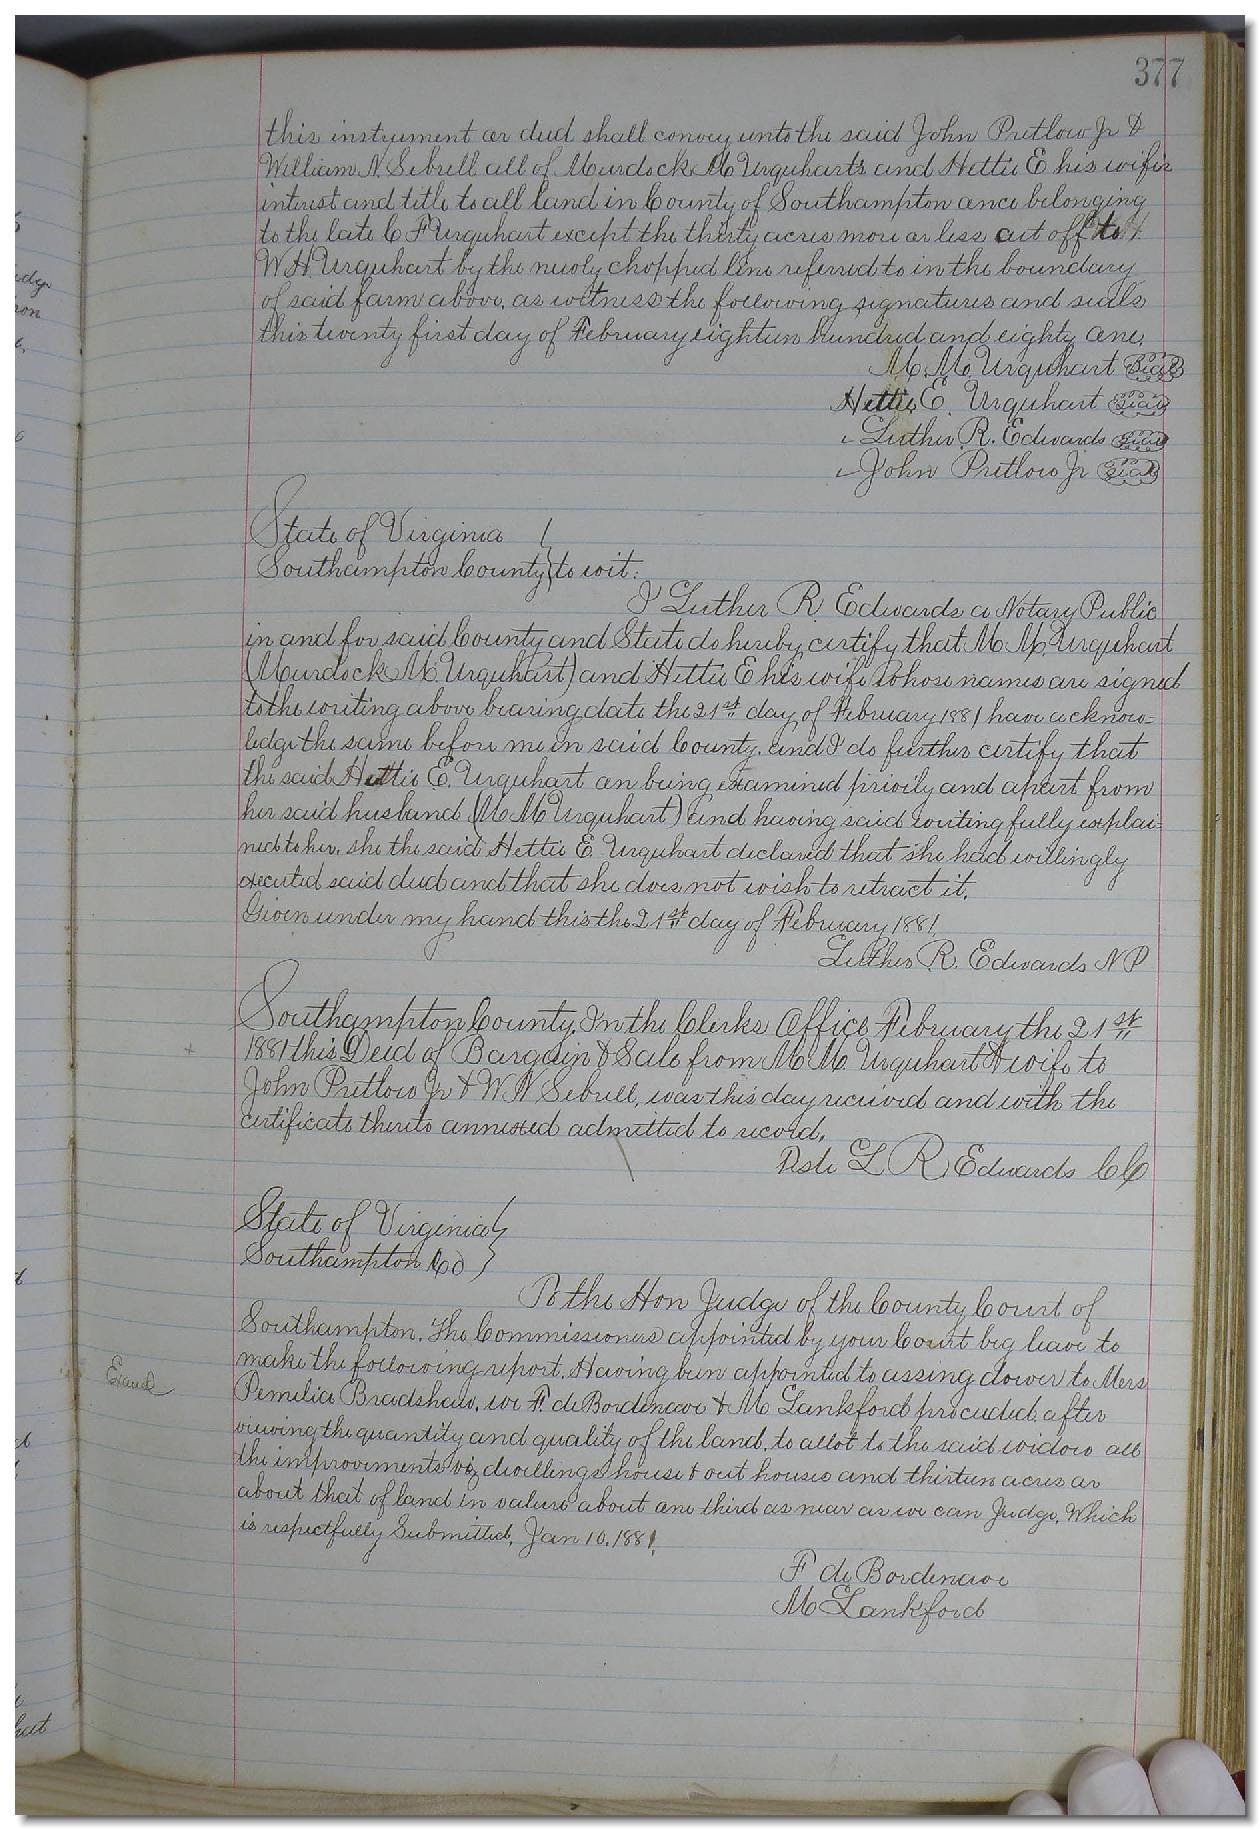 377
this instrument or deed shall convey unto the said John Pretlow Jr &
William N. Sebrell all of Murdock M Urquharts and Hettie E his wifes
interest and title to all land in County of Southampton once belonging
to the late C F Urquhart except the thirty acres more or less cut off to
W.H. Urquhart by the newly chopped line referred to in the boundary
of said farm above, as witness the following signatures and seals
this twenty first day of February eighteen hundred and eighty one.
M. M. Urquhart Seal
Hettie E. Urquhart Seal
Luther R. Edwards Seal
John Pretlow Jr Seal
State of Virginia
Southampton County to wit:
I Luther R. Edwards a Notary Public
in and for said County and State do hereby certify that M. M. Urquhart
(Murdock M. Urquhart) and Hettie E his wife whose names are signed
to the writing above bearing date the 21st day of February 1881 have acknow-
ledge the same before me in said County. and I do further certify that
the said Hettie E. Urquhart on being examined privily and apart from
her said husband (M M Urquhart) and having said writing fully explai-
ned to her, she the said Hettie E. Urquhart declared that she had willingly
executed said deed and that she does not wish to retract it.
Given under my hand this the 21st day of February 1881.
Luther R. Edwards N P
Southampton County, In the Clerks Office February the 21st
1881 this Deed of Bargain & Sale from M. M. Urquhart & wife to
John Pretlow Jr & W N Sebrell, was this day received and with the
certificate thereto annexed admitted to record,
Teste L R Edwards CC
State of Virginia
Southampton Co
To the Hon Judge of the County Court of
Southampton. The Commissioners appointed by your Court beg leave to
make the following report. Having been appointed to assing dower to Mers
Pemelia Bradshaw, we F. de Bordenave & M Lankford proceeded, after
viewing the quantity and quality of the land, to allot to the said widow all
the improvements viz dwellings house & out houses and thirteen acres or
about that of land in value about one third as near as we can Judge, Which
is respectfully Submitted, Jan 10, 1881.
F de Bordenave
M Lankford